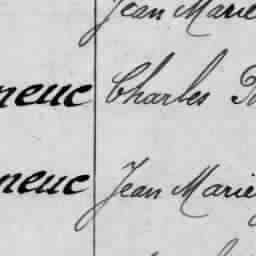 Jean Marie
neuc Charles
neuc Jean Marie